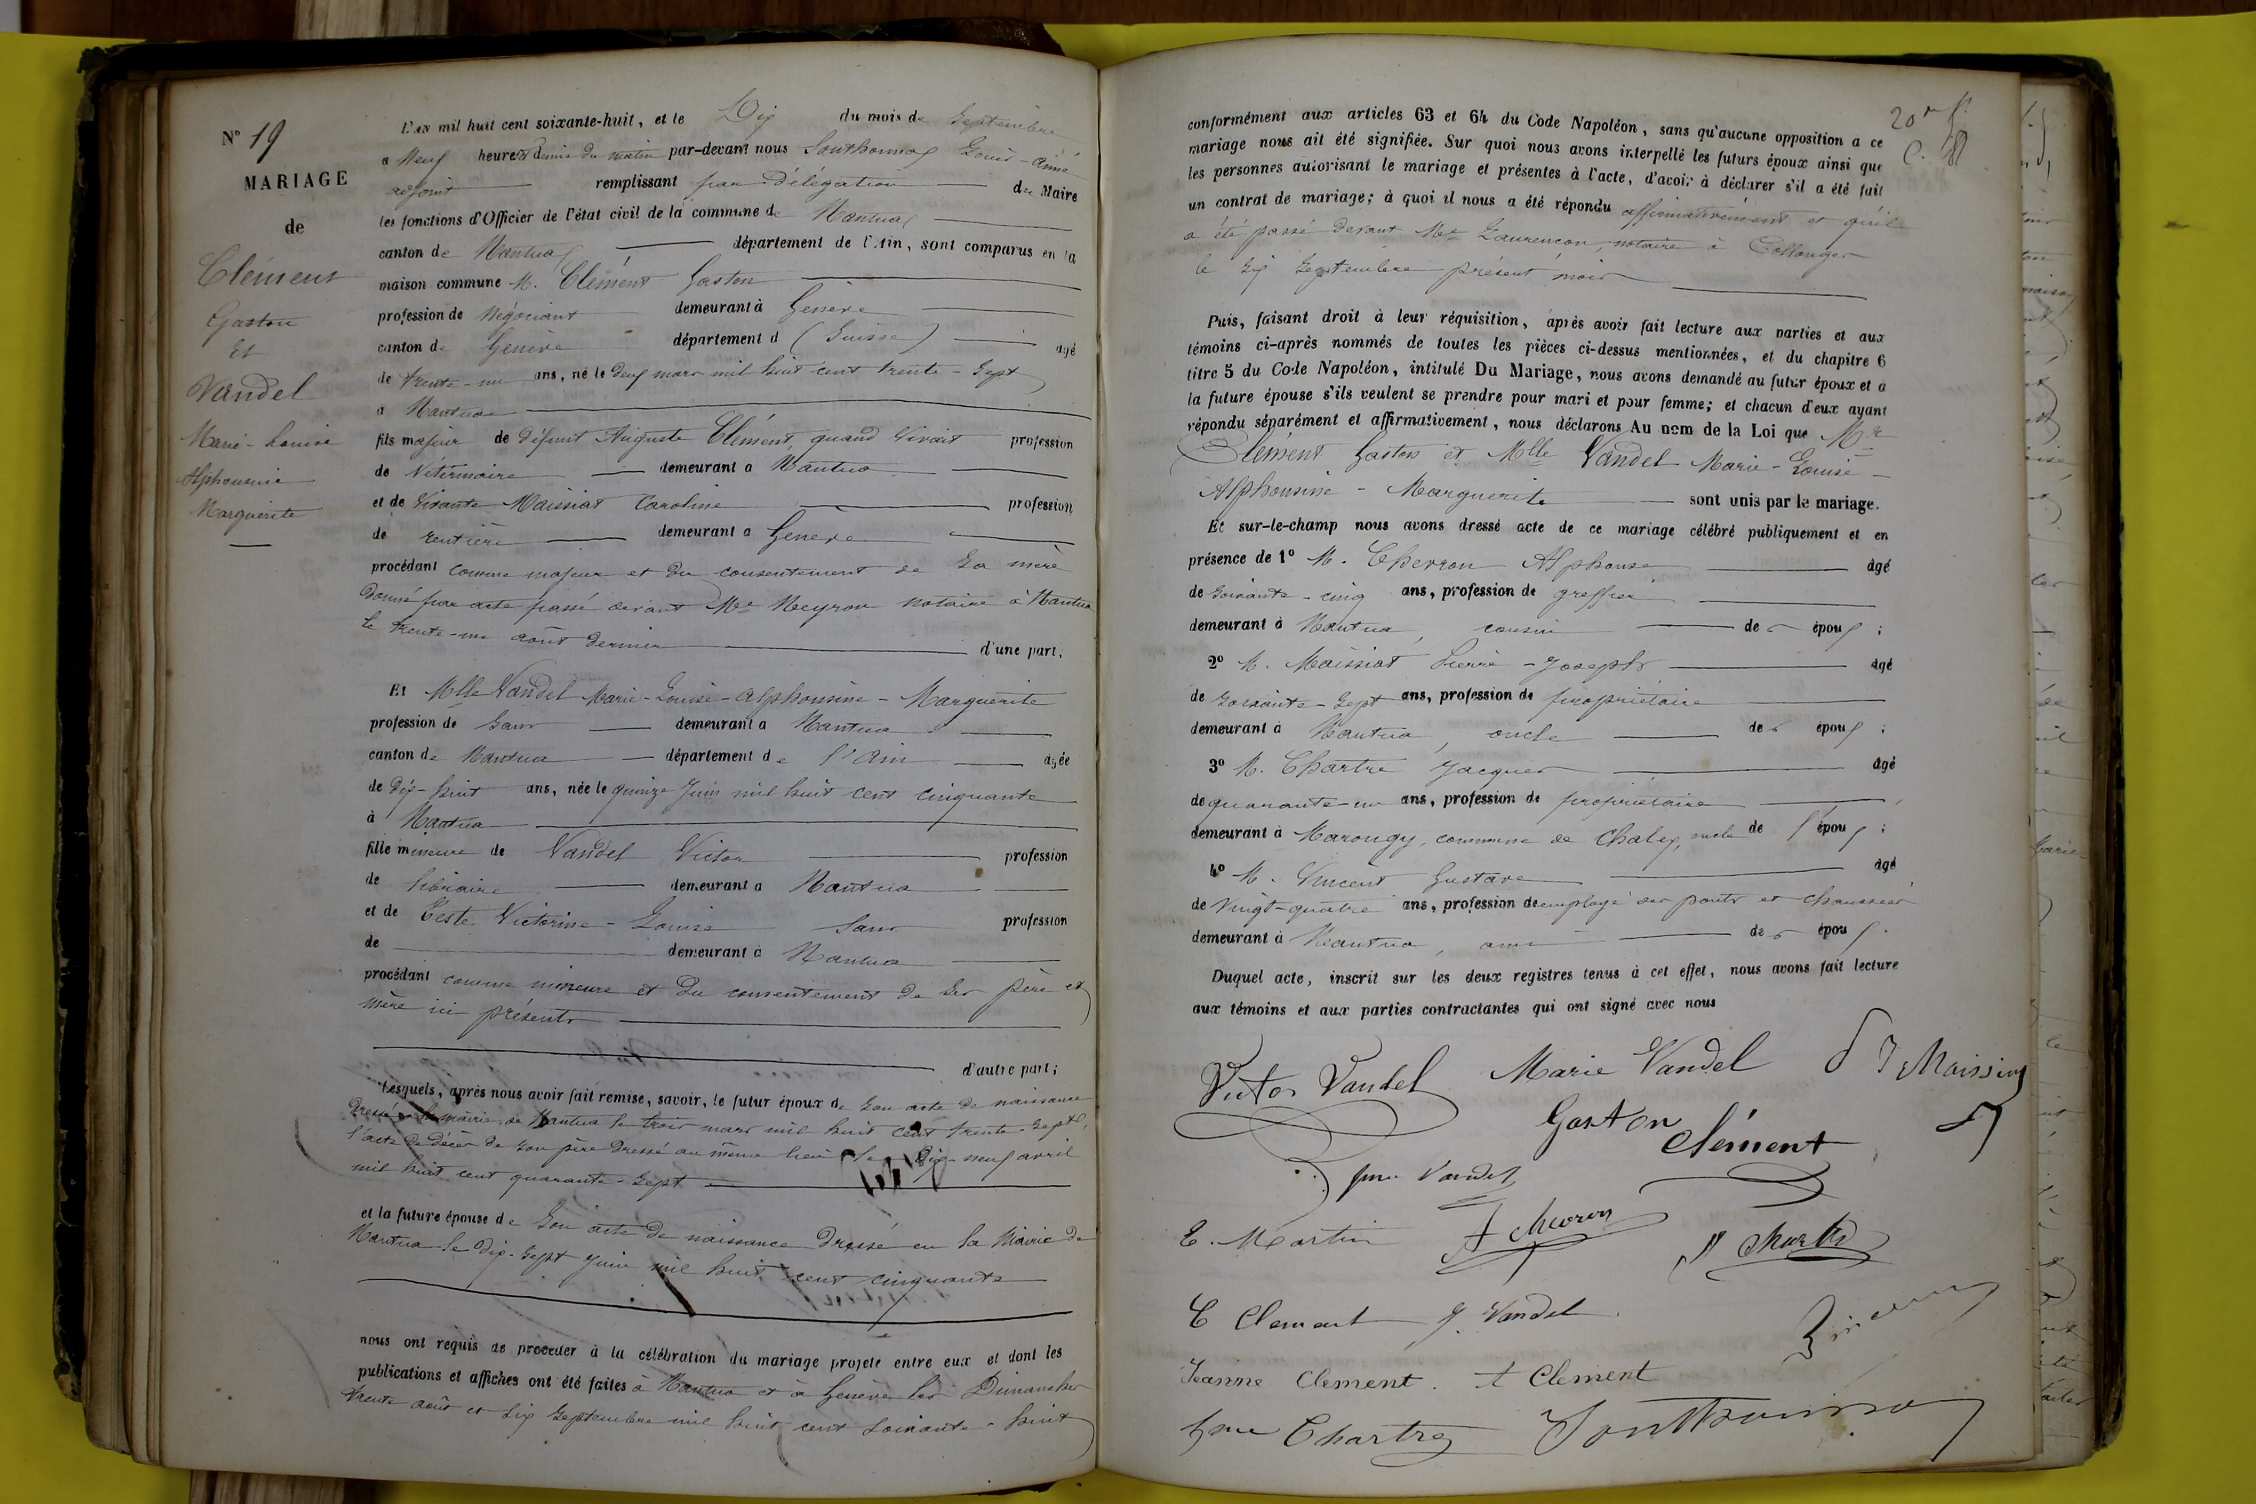 N° 19
MARIAGE
de
Clément
Gaston
Et
Vandel
Marie-Louise
Alphonsine
Marguerite
L'an mil huit cent soixante-huit, et le Dix du mois de Septembre
a Neuf heures & demie du matin par-devant nous Southonnax Louis-Aimé
adjoint remplissant par Délégation du Maire
les fonctions d'Officier de l'état civil de la commune de Nantua
canton de Nantua département de l'Ain, sont comparus en la
maison commune M. Clément Gaston
profession de Négociant demeurant à Genève
canton de Genève département d (Suisse) agé
de trente-un ans, né le deux mars mil huit cent trente-sept
a Nantua
fils majeur de défunt Auguste Clément, quand vivait profession
de Vétérinaire demeurant a Nantua
et de vivante Maissiat Caroline profession
de rentière demeurant a Genève
procédant comme majeur et du consentement de sa mère
donné par acte passé devant Me Neyron notaire à Nantua
le trente-un août dernier d'une part;
Et Mlle Vandel Marie-Louise-Alphonsine-Marguerite
profession de sans demeurant a Nantua
canton de Nantua département de l'Ain agée
de dix-huit ans, née le quinze Juin mil huit cent cinquante
à Nantua
fille mineure de Vandel Victor profession
de libraire demeurant a Nantua
et de Teste Victorine-Louise sans profession
de demeurant à Nantua
procédant comme mineure et du consentement de ses père et
mère ici présents
d'autre part;
Lesquels, après nous avoir fait remise, savoir, le futur époux de son acte de naissance
dressé mairie de Nantua le trois mars mil huit cent trente-sept,
l'acte de décès de son père dressé au même lieu le dix-neuf avril
mil huit cent quarante-sept
et la future épouse de son acte de naissance dressé en la Mairie de
Nantua le dix-sept juin mil huit cent cinquante
nous ont requis de procéder à la célébration du mariage projeté entre eux et dont les
publications et affiches ont été faites à Nantua et à Genève les Dimanches
trente août et six septembre mil huit cent soixante-huit
conformément aux articles 63 et 64 du Code Napoléon, sans qu'aucune opposition a ce
mariage nous ait été signifiée. Sur quoi nous avons interpellé les futurs époux ainsi que
les personnes autorisant le mariage et présentes à l'acte, d'avoir à déclarer s'il a été fait
un contrat de mariage; à quoi il nous a été répondu affirmativement et qu'il
a été passé devant Me Laurençon, notaire à Collonges
le six septembre présent mois
Puis, faisant droit à leur réquisition, après avoir fait lecture aux parties et aux
témoins ci-après nommés de toutes les pièces ci-dessus mentionnées, et du chapitre 6
titre 5 du Code Napoléon, intitulé Du Mariage, nous avons demandé au futur époux et a
la future épouse s'ils veulent se prendre pour mari et pour femme; et chacun d'eux ayant
répondu séparément et affirmativement, nous déclarons Au nom de la Loi que Mr
Clément Gaston et Mlle Vandel Marie-Louise-
Alphonsine-Marguerite sont unis par le mariage.
Et sur-le-champ nous avons dressé acte de ce mariage célébré publiquement et en
présence de 1° M. Chevron Alphonse âgé
de soixante-cinq ans, profession de greffier
demeurant à Nantua, cousin de époux;
2° M. Maissiat Pierre-Joseph agé
de soixante-sept ans, profession de propriétaire
demeurant à Nantua, oncle de époux;
3° M. Chartre Jacques âgé
de quarante-un ans, profession de propriétaire
demeurant à commune de Chaley, oncle de l'époux;
4° M. Vincent Gustave âgé
de vingt-quatre ans, profession de employé des ponts et chaussées
demeurant à Nantua, ami de époux.
Duquel acte, inscrit sur les deux registres tenus à cet effet, nous avons fait lecture
aux témoins et aux parties contractantes qui ont signé avec nous
Victor Vandel Marie Vandel Maissiat
Gaston
Clément
Vandel
E. Martin A Chevron Chartre
C Clement J. Vandel
Jeanne Clement. A Clement Vincent
Chartre Southonnax